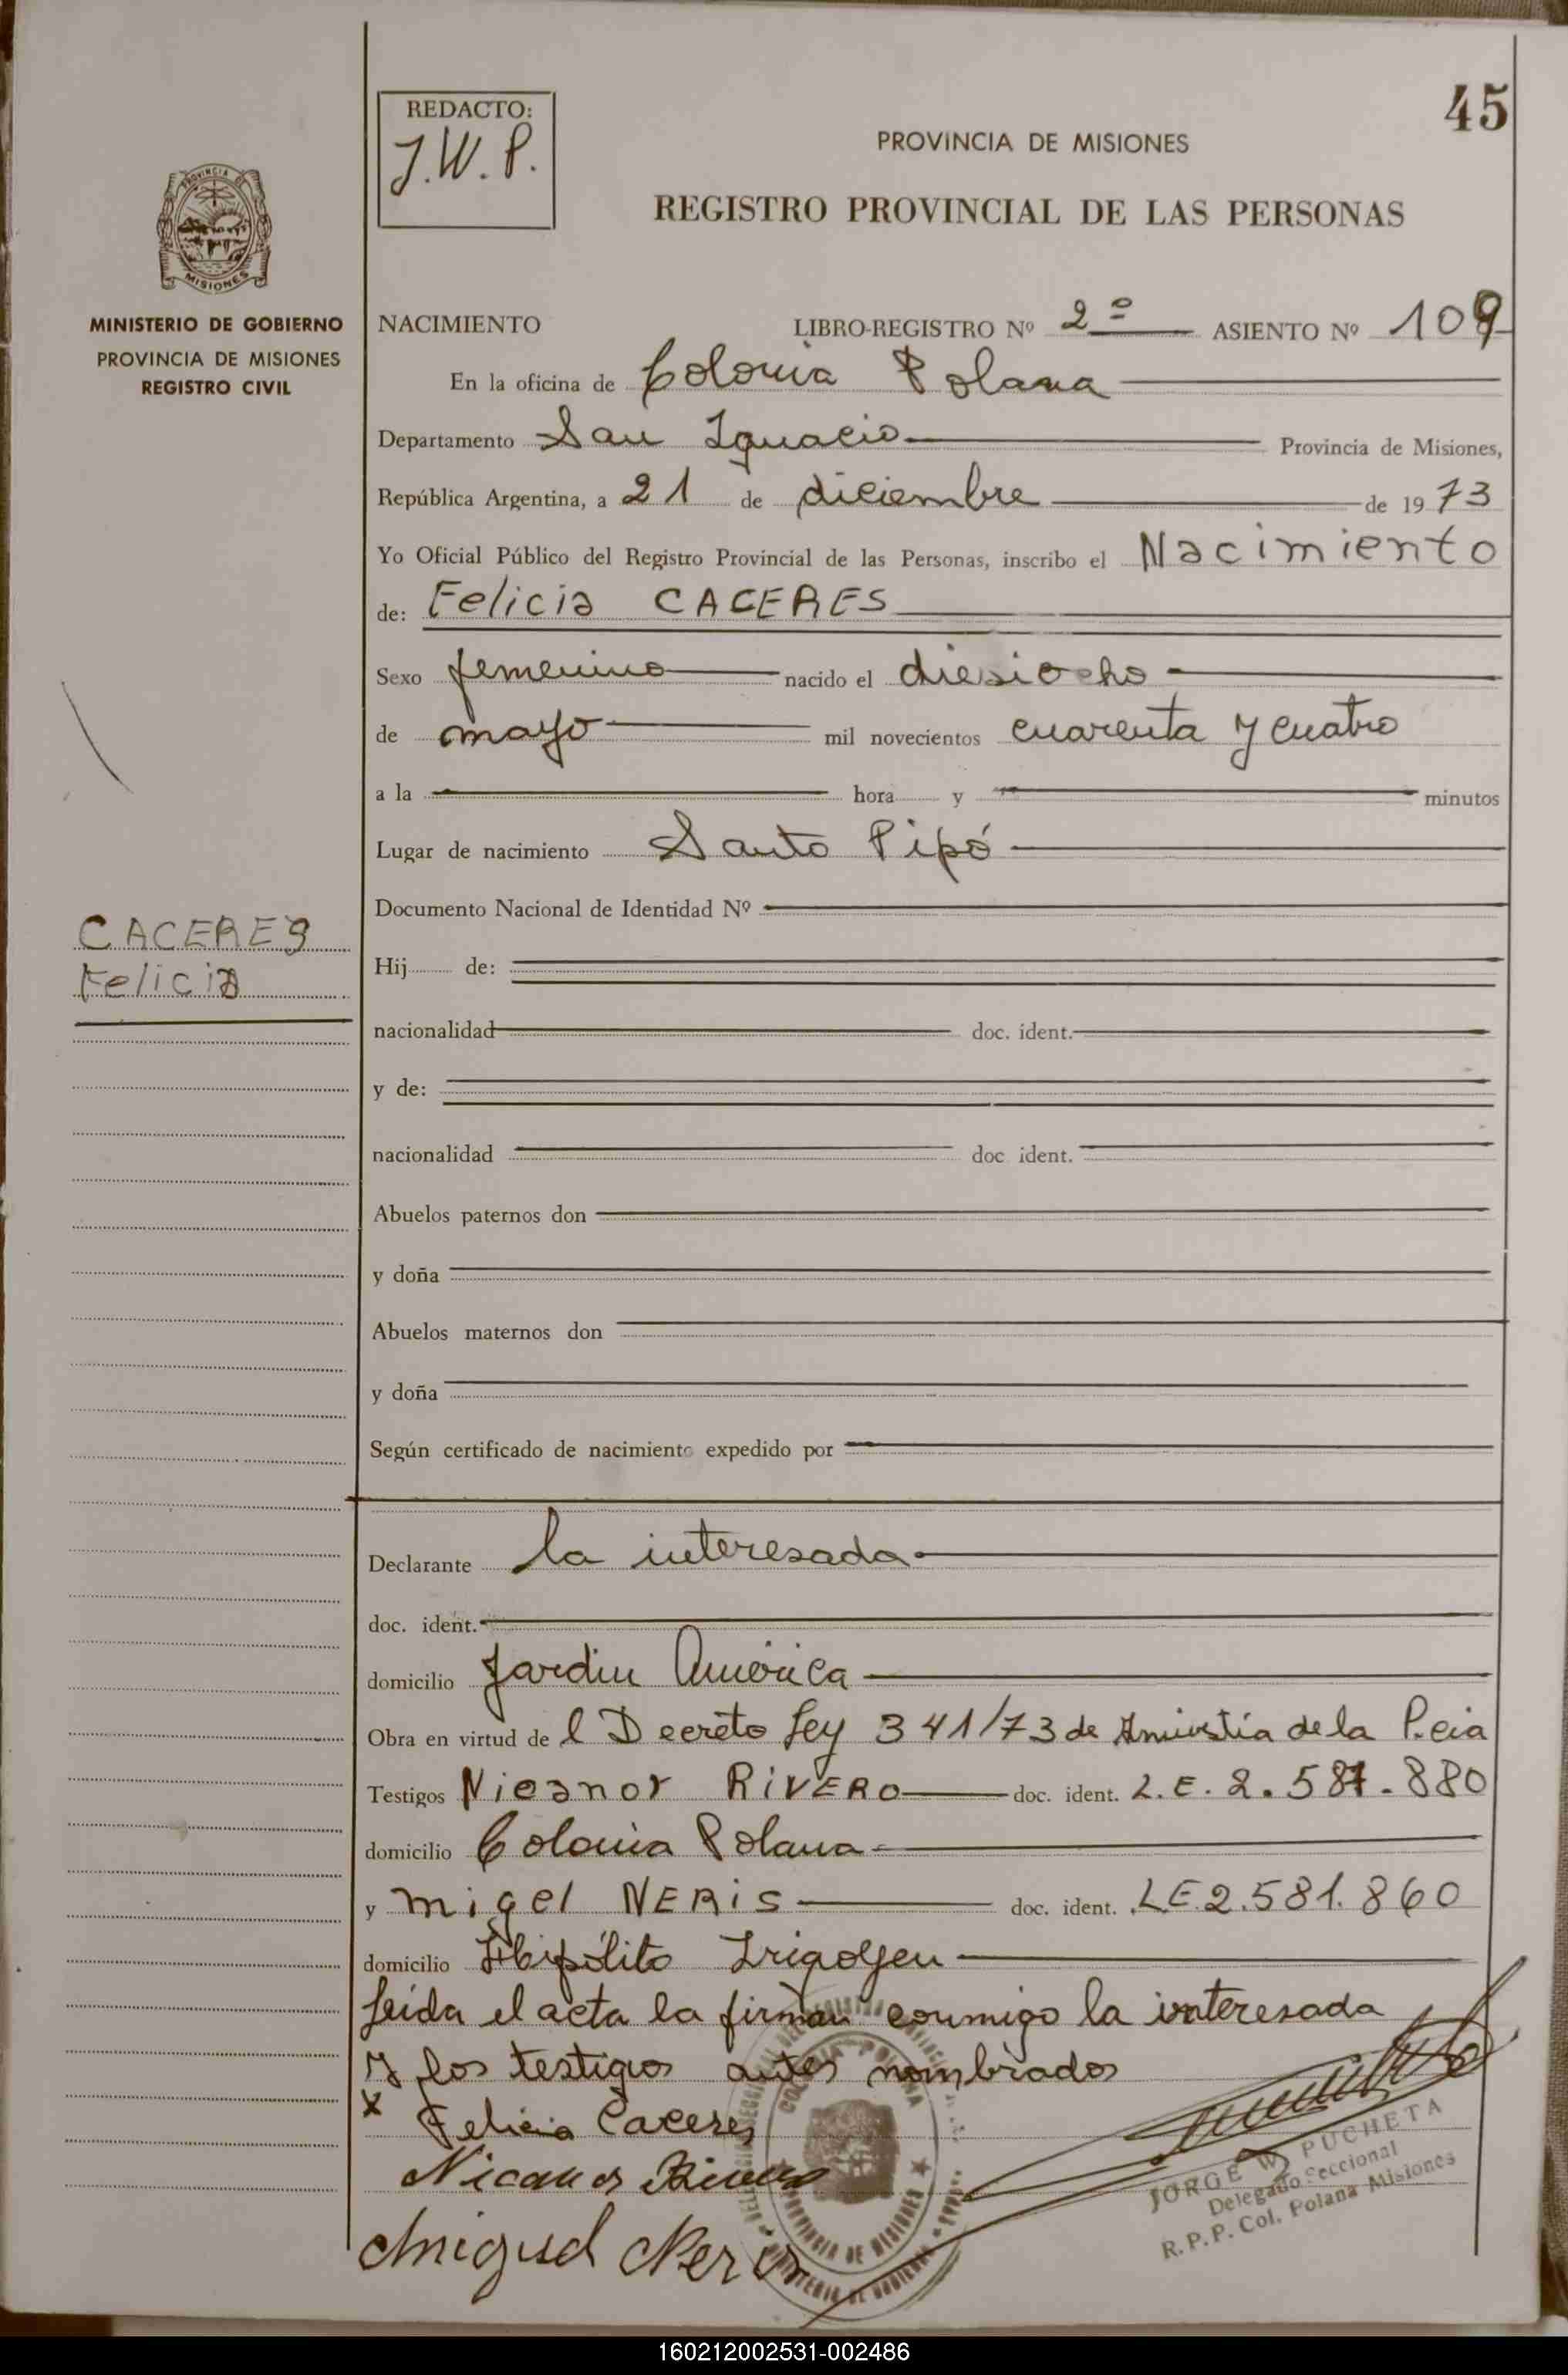 45
REDACTO:
J.W.P.
PROVINCIA DE MISIONES
REGISTRO PROVINCIAL DE LAS PERSONAS
PROVINCIA DE
MISIONES
MINISTERIO DE GOBIERNO
PROVINCIA DE MISIONES
REGISTRO CIVIL
NACIMIENTO LIBRO-REGISTRO Nº 2º ASIENTO Nº 109
En la oficina de Colonia Polana
Departamento San Ignacio Provincia de Misiones,
República Argentina, a 21 de diciembre de 1973
Yo Oficial Público del Registro Provincial de las Personas, inscribo el Nacimiento
de: Felicia CACERES
Sexo femenino nacido el diesiocho
de mayo mil novecientos cuarenta y cuatro
a la hora y minutos
Lugar de nacimiento Santo Pipó
Documento Nacional de Identidad Nº
CACERES
Felicia
Hij de:
nacionalidad doc. ident.
y de:
nacionalidad doc ident.
Abuelos paternos don
y doña
Abuelos maternos don
y doña
Según certificado de nacimiento expedido por
Declarante la interesada
doc. ident.
domicilio Jardin América
Obra en virtud de l Decreto Ley 341/73 de Amnistía de la P.cia
Testigos Nicanor RIVERO doc. ident. L.E. 2.581.880
domicilio Colonia Polana
y migel NERIS doc. ident. LE.2.581.860
domicilio Hipólito Irigoyen
Leida el acta la firman conmigo la interesada
y los testigos antes nombrados
x Felicia Caceres
Nicanor Rivero
Miguel Neris
COLONIA POLANA
PROVINCIA DE MISIONES
JORGE W. PUCHETA
Delegado Seccional
R.P.P. Col. Polana-Misiones
160212002531-002486